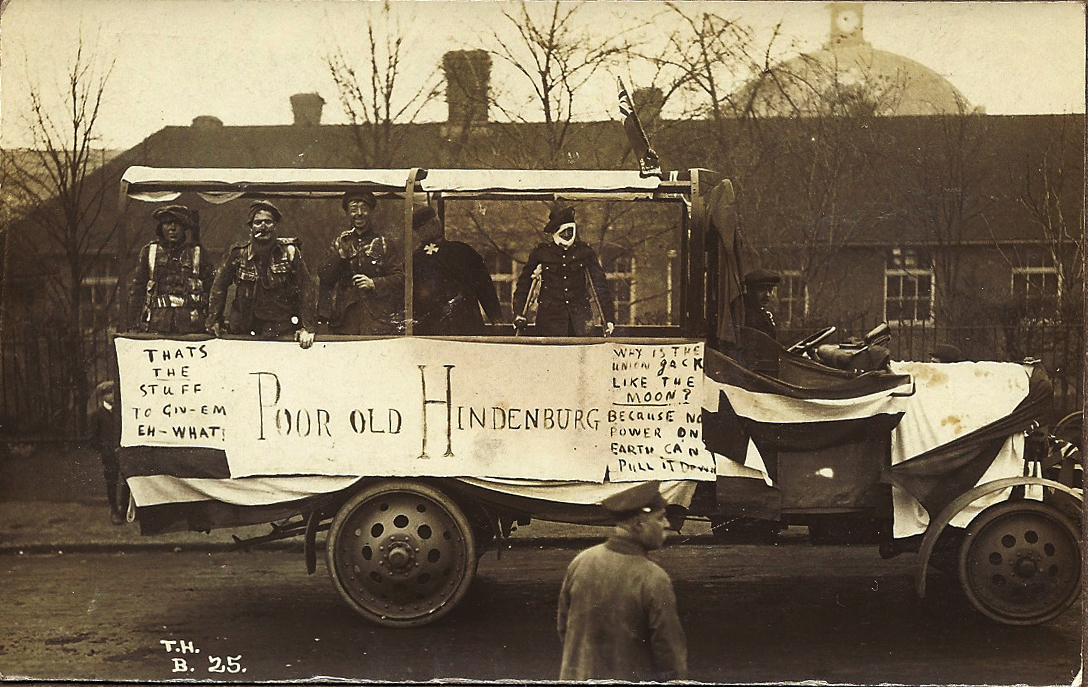 THATS
THE
STUFF
TO GIV-EM
EH-WHAT!
POOR OLD HINDENBURG
WHY IS THE
UNION JACK
LIKE THE
MOON?
BECAUSE NO
POWER ON
EARTH CAN
PULL IT DOWN
T.H.
B. 25.